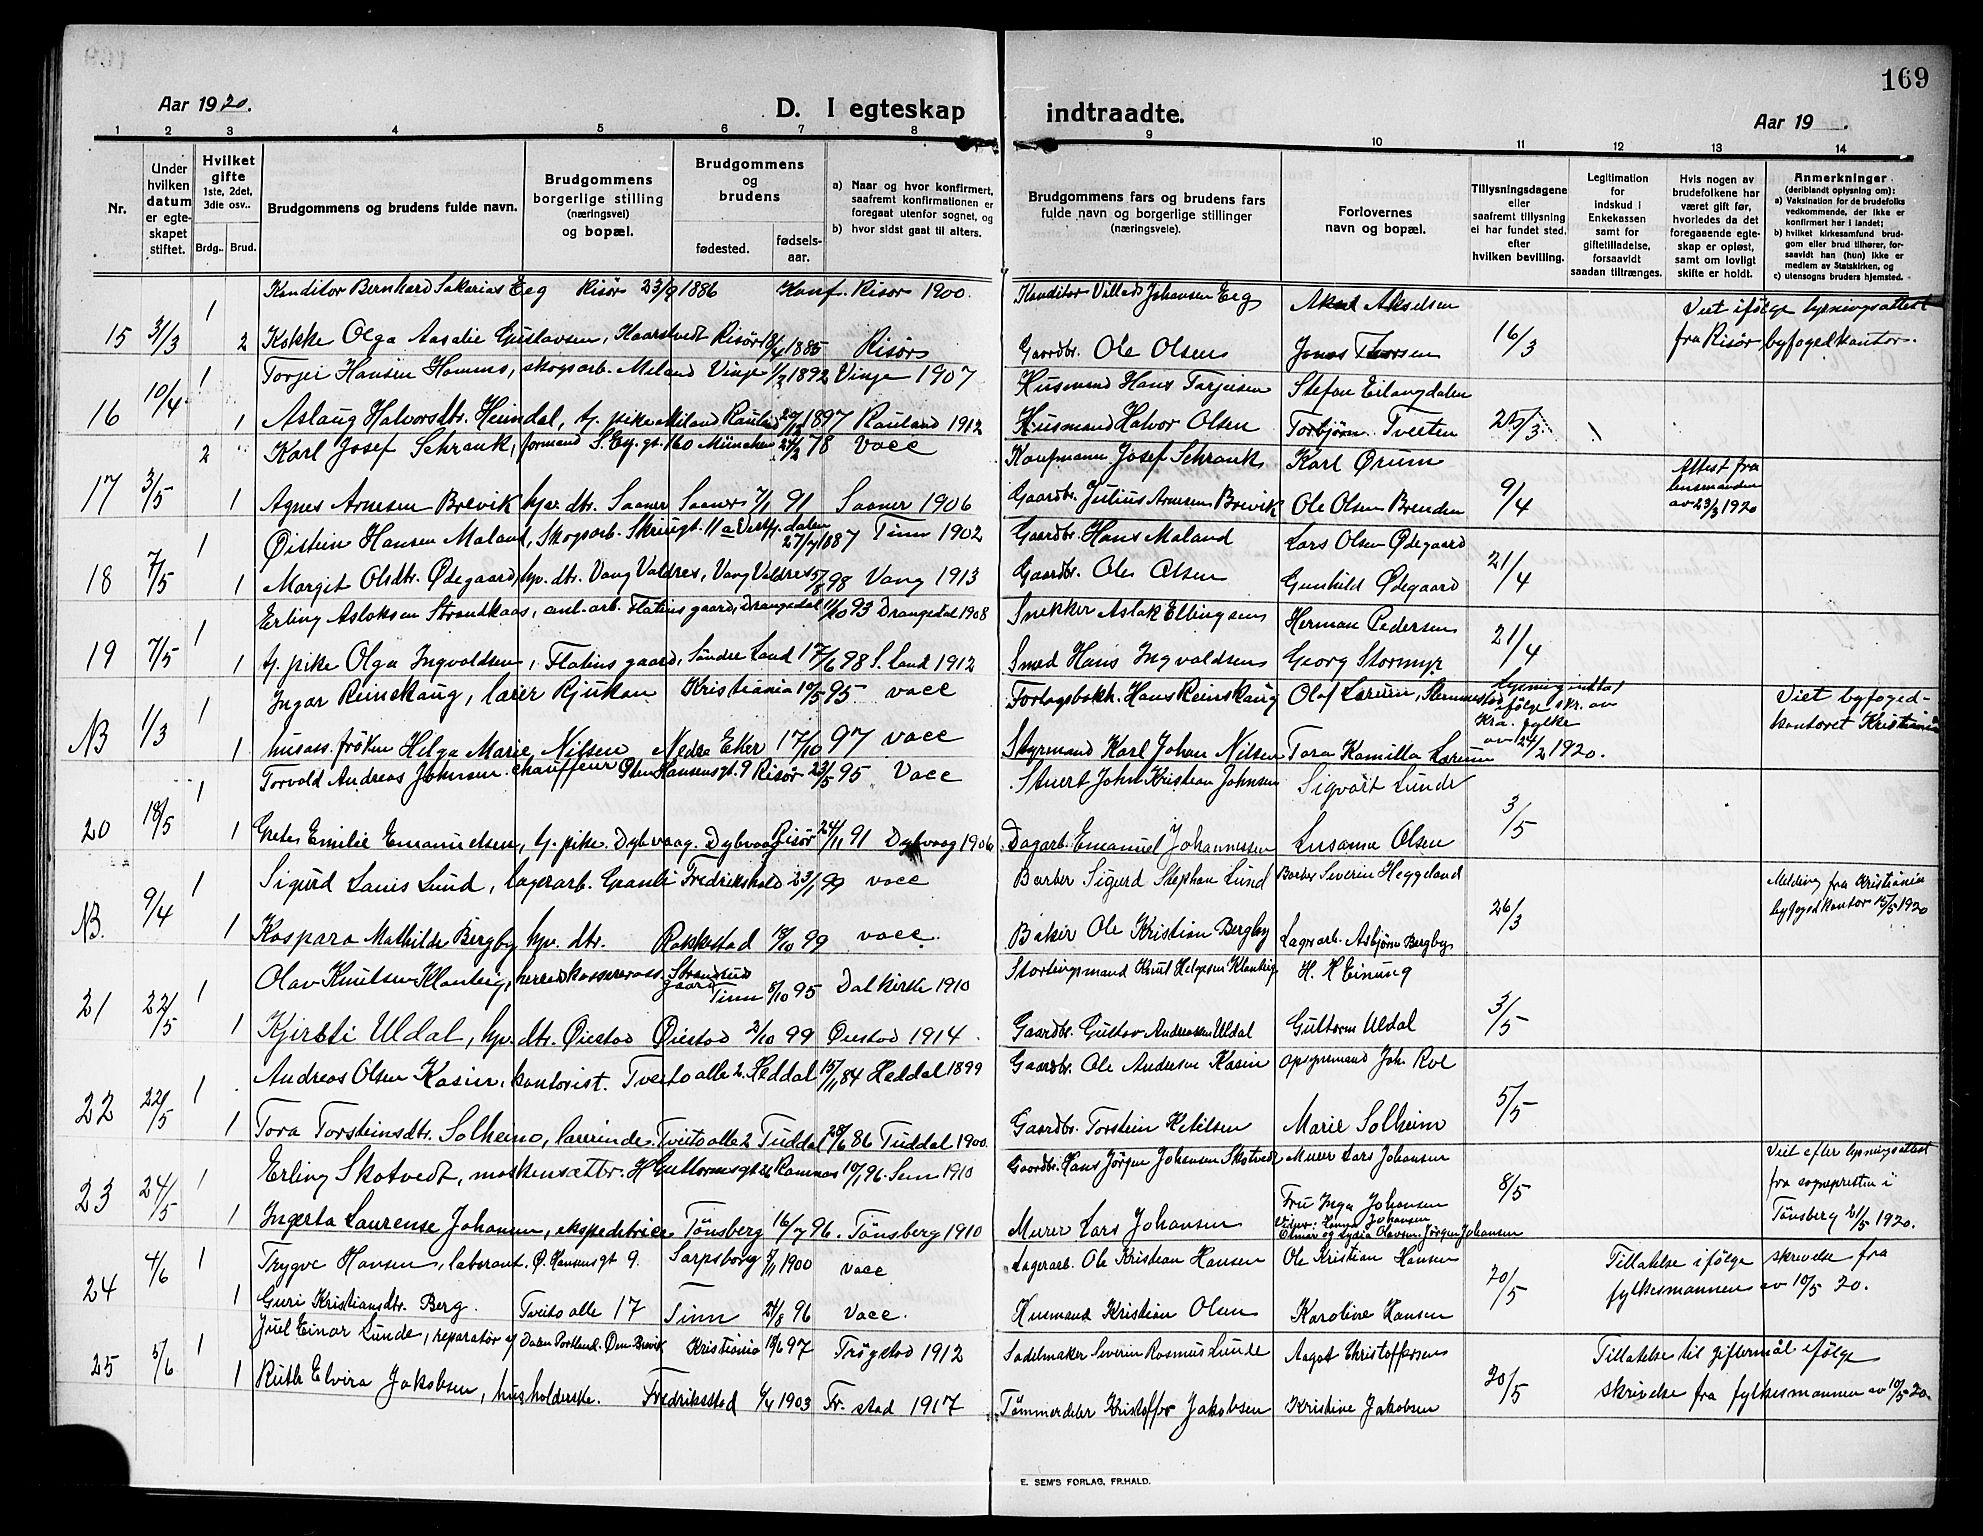 169
Aar 1920.
D. I egteskap indtraadte.
Aar 19   .
1 2 3 4 5 6 7 8 9 10 11 12 13 14
Nr.
Under hvilken datum er egteskapet stiftet.
Hvilket gifte
1ste, 2det, 3die osv..
Brdg.. Brud.
Brudgommens og brudens fulde navn.
Brudgommens borgerlige stilling (næringsvei) og bopæl.
Brudgommens og brudens
fødested. fødselsaar.
a) Naar og hvor konfirmert, saafremt konfirmationen er foregaat utenfor sognet, og
b) hvor sidst gaat til alters.
Brudgommens fars og brudens fars fulde navn og borgerlige stillinger (næringsveie).
Forlovernes navn og bopæl.
Tillysningsdagene eller saafremt tillysning ei har fundet sted, efter hvilken bevilling.
Legitimation for indskud i Enkekassen samt for giftetilladelse, forsaavidt saadan tiltrænges.
Hvis nogen av brudefolkene har været gift før, hvorledes da det foregaaende egteskap er opløst, samt om lovligt skifte er holdt.
Anmerkninger (deriblandt oplysning om):
a) Vaksination for de brudefolks vedkommende, der ikke er konfirmert her i landet;
b) hvilket kirkesamfund brudgom eller brud tilhører, forsaavidt han (hun) ikke er medlem av Statskirken, og
c) utensogns bruders hjemsted.
1 Konditor Bernhard Sakarias Eeg Risør 23/9 1886 Konf. Risør 1900. Konditor Villads Johansen Eeg Aksel Akselsen Viet ifølge lysningsattest
15 3/3 2 Kokke Olga Aasalie Gustavsen, Haarstvedt Risør 18/4 1885 Risør Gaardbr. Ole Olsen Jonas Thorsen 16/3 fra Risør byfogedkontor.
1 Torjei Hansen Hommo, skogsarb. Meland Vinje 1/2 1892 Vinje 1907 Husmand Hans Torjeisen Stefan Eilangdalen
16 10/4 1 Aslaug Halvorsdtr. Heimdal, tj. pike Meland Rauland 1897 Rauland 1912 Husmand Halvor Olsen Torbjørn Tveiten
2 Karl Josef Schrank, formand S. Ey. gt. 160 München 24/2 78 Vacc Kaufmann Josef Schrank Karl Ørum Attest fra lensmanden av 23/3 1920
17 3/5 1 Agnes Arnesen Brevik hjv. dtr. Saaner Saaner 7/1 91 Saaner 1906 Gaardbr. Julius Arnesen Brevik Ole Olsen Brenden 9/4
1 Øistein Hansen Maland, Skogsarb. Skriugt. 11 a Vestfj. dalen 27/7 1887 Tinn 1902 Gaardbr. Hans Maland Lars Olsen Ødegaard
18 7/5 1 Margit Olsdtr. Ødegaard, hjv. dtr. Vang Valdres, Vang Valdres 5/8 98 Vang 1913 Gaardbr. Ole Olsen Gunhild Ødegaard 21/4
1 Erling Aslaksen Strandkaas, anl. arb. Flatins gaard, Drangedal 11/10 93 Drangedal 1908 Snekker Aslak Ellingsen Herman Pedersen
19 7/5 1 tj. pike Olga Ingvaldsen, Flatins gaard, Søndre Land 17/6 98 S. Land 1912 Smed Hans Ingvaldsen Georg Stormyr 21/4
1 Ingar Reinskaug, lærer Rjukan Kristiania 10/5 95 vacc Forlagsbokh. Hans Reinskaug Olaf Lærum, Lysning indtat ifølge skr. av Kra. fylke av 24/2 1920. Viet byfogedkontoret Kristiania
NB 1/3 1 husass. frøken Helga Marie Nilsen Nedre Eker 17/10 97 vacc Styrmand Karl Johan Nilsen Tora Kamilla Lærum
1 Torvald Andreas Johnsen. chauffeur Øtm Hansensgt. 9 Risør 23/5 95 Vacc Stuert John Kristian Johnsen Sigvart Lunde
20 18/5 1 Grete Emilie Emanuelsen, tj. pike. Dybvaag. Dybvaag Risør 24/11 91 Dybvaag 1906 Dagarb. Emanuel Johannessen Susanne Olsen 3/5
1 Sigurd Lauis Lund, lagerarb. Granli Fredrikshald 23/1 99 vacc Barber Sigurd Stephan Lund Barber Severin Heggeland Melding fra Kristiania byfogedkontor 15/5 1920
NB. 9/4 1 Kaspara Mathilde Bergby hjv. dtr. Rakkestad 18/10 99 vacc. Baker Ole Kristian Bergby Lagerarb. Asbjørn Bergby 26/3
1 Olav Knutsen Klonteig, herredskasserarass. Strandrud gaard Tinn 8/10 95 Dal kirke 1910 Stortingsmand Knut Helgesen Klonteig H. H Einung
21 22/5 1 Kjersti Uldal, hjv. dtr. Øiestad Øiestad 2/10 99 Øiestad 1914. Gaardbr. Gustav Andreassen Uldal Guttorm Uldal 3/5
1 Andreas Olsen Kasin, kontorist. Tveito alle 2. Heddal 15/11 84 Heddal 1899 Gaardbr. Ole Andersen Kasin opsynsmand Joh. Roe
22 22/5 1 Tora Torsteinsdtr. Solheim, lærerinde. Tveito alle 2 Tuddal 28/6 86 Tuddal 1900. Gaardbr. Torstein Ketilsen Marie Solheim 5/5
1 Erling Skotvedt, maskensætter. H Guttormsgt 26 Ramnes 10/1 96. Sem 1910 Gaardbr. Hans Jørgen Johansen Skotvedt Murer Lars Johansen Viet efter lysningsattest
23 24/5 1 Ingerta Laurense Johansen, ekspeditrice Tønsberg 16/7 96. Tønsberg 1910 Murer Lars Johansen Fru Inga Johansen 8/5 fra sognepresten i Tønsberg 21/5 1920.
1 Trygve Hansen, laborant. Ø. Hansensgt 9. Sarpsborg 7/11 1900 vacc Lagerarb. Ole Kristian Hansen Ole Kristian Hansen Tillatelse ifølge skrivelse fra
24 4/6 1 Guri Kristiansdtr. Berg. Tveito alle 17 Tinn 21/8 96 Vacc. Husmand Kristian Olsen Karoline Hansen 20/5 fylkesmannen av 10/5 20.
1 Juel Einar Lunde, reparatør v/ Dalen Portland. Brevik Kristiania 18/6 97 Trøgstad 1912 Sadelmaker Severin Rasmus Lunde Aagot Christoffersen Tillatelse til giftermål ifølge
25 5/6 1 Ruth Elvira Jakobsen, husholderske. Fredriksstad 6/4 1903 Fr. stad 1917 Tømmerdeler Kristoffer Jakobsen Kristine Jakobsen 20/5 skrivelse fra fylkesmannen av 10/5 20.
E. SEM'S FORLAG, FR.HALD.